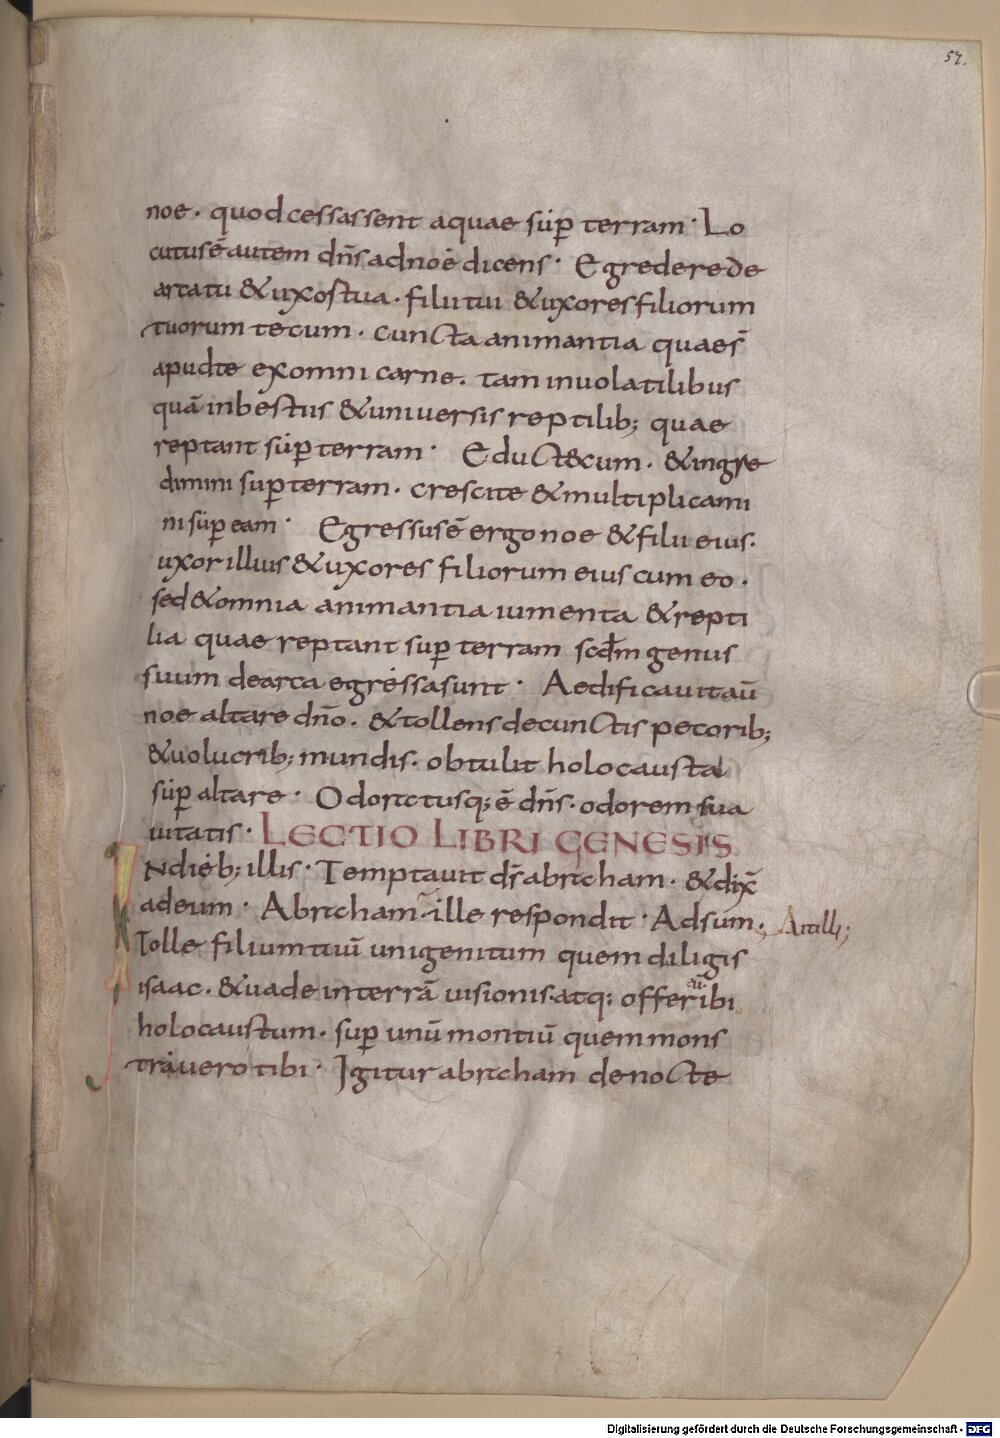 57.
noe · quod cessassent aquae sup̱ terram · Lo
cutus ē autem dn̄s ad noe dicens · Egredere de
arca tu & uxor tua · filii tui & uxores filiorum
tuorum tecum · cuncta animantia quae s̄
apud te ex omni carne · tam in uolatilibus
quā in bestiis & uniuersis reptilib; quae
reptant sup̱ terram · Educ tecum · & ingre
dimini sup̱ terram · crescite & multiplicami
ni sup̱ eam · Egressus ē ergo noe & filii eius ·
uxor illius & uxores filiorum eius cum eo ·
sed & omnia animantia iumenta & repti
lia quae reptant sup̱ terram scd̄m genus
suum de arca egressa sunt · Aedificauit aū
noe altare dn̄o · & tollens de cunctis pecorib;
& uolucrib; mundis · obtulit holocausta
sup̱ altare · Odoratusq; ē dn̄s · odorem sua
uitatis · LECTIO LIBRI GENESIS
INdieb; illis · Temptauit d̄s abraham · & dix̄
ad eum · Abraham · ille respondit · Adsum · Ait illi;
Tolle filium tuū unigenitum quem diligis
isaac · & uade in terrā uisionis · atq; offer ibi
eū
holocaustum · sup̱ unū montiū quem mons
trauero tibi · Igitur abraham de nocte
Digitalisierung gefördert durch die Deutsche Forschungsgemeinschaft - DFG